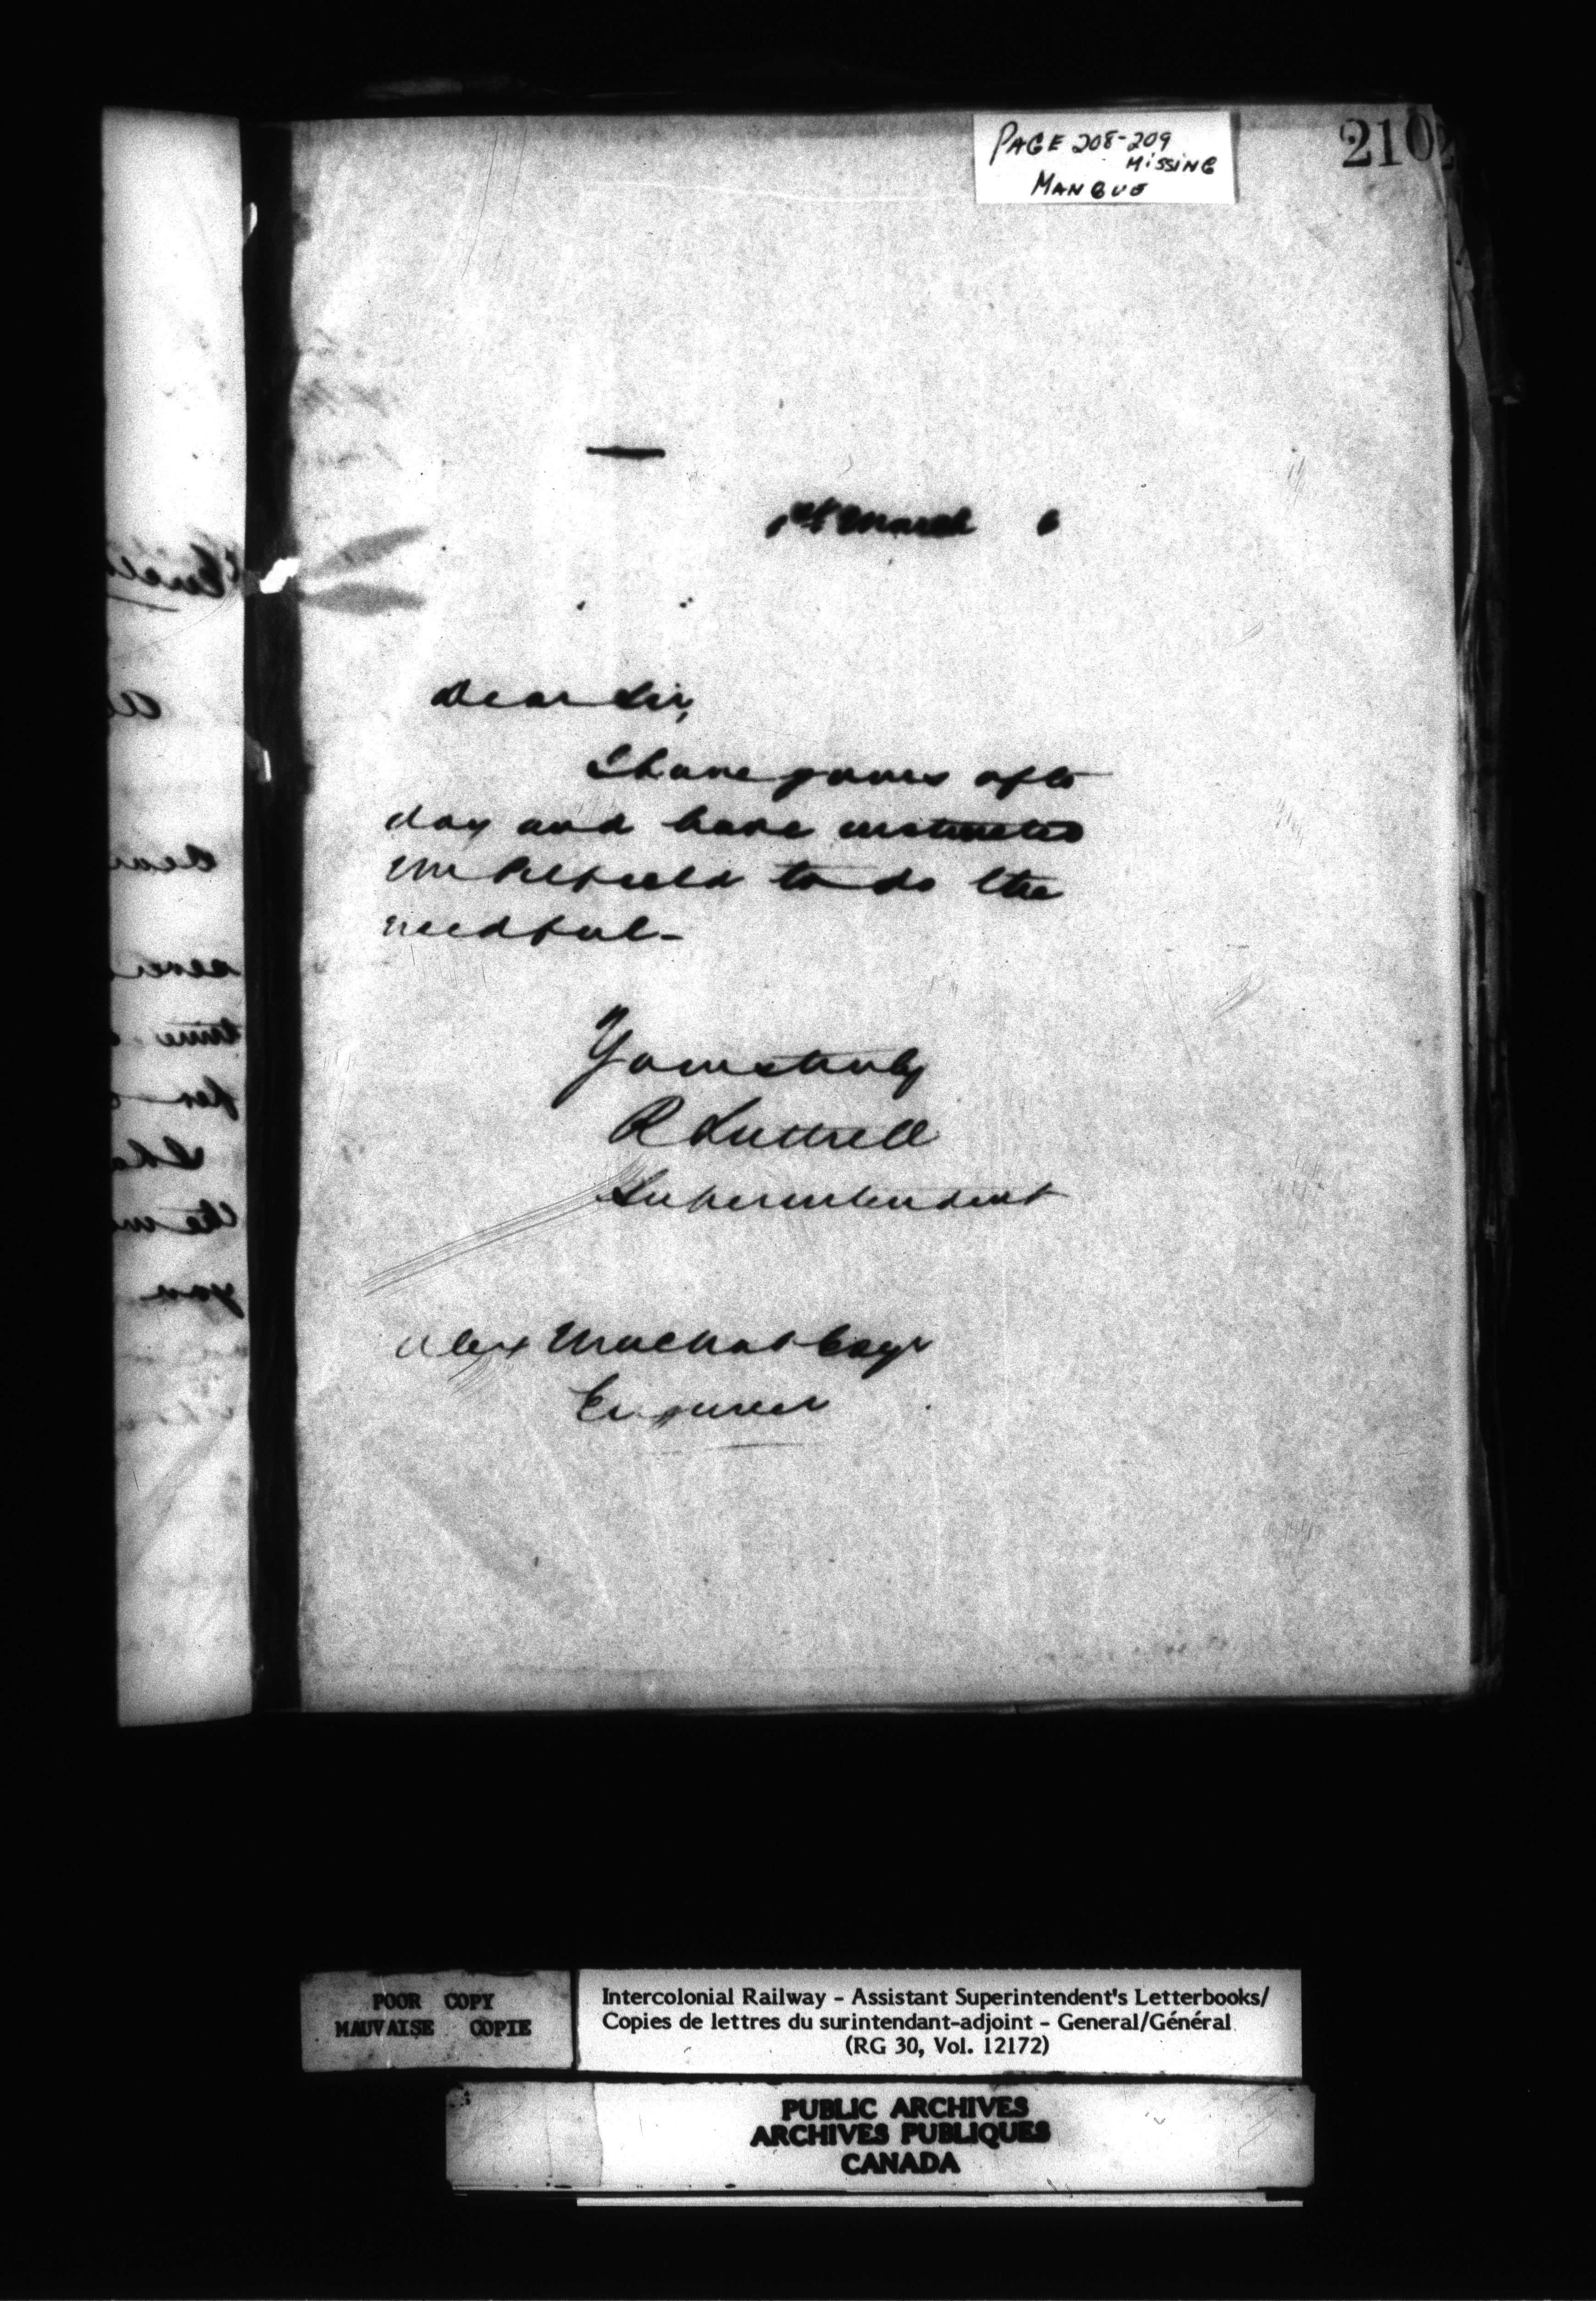 PAGE 208-209
MISSING
MANQUE
210
1st March 6
Dear Sir,
I have yours of to
day and have instructed
Mr Pelfield to do the
needful-
Yours truly
R Luttrell
Superintendent
Alex MacNab Esqr
Engineer
POOR COPY
MAUVAISE COPIE
Intercolonial Railway - Assistant Superintendent's Letterbooks/
Copies de lettres du surintendant-adjoint - General/Général
(RG 30, Vol. 12172)
PUBLIC ARCHIVES
ARCHIVES PUBLIQUES
CANADA